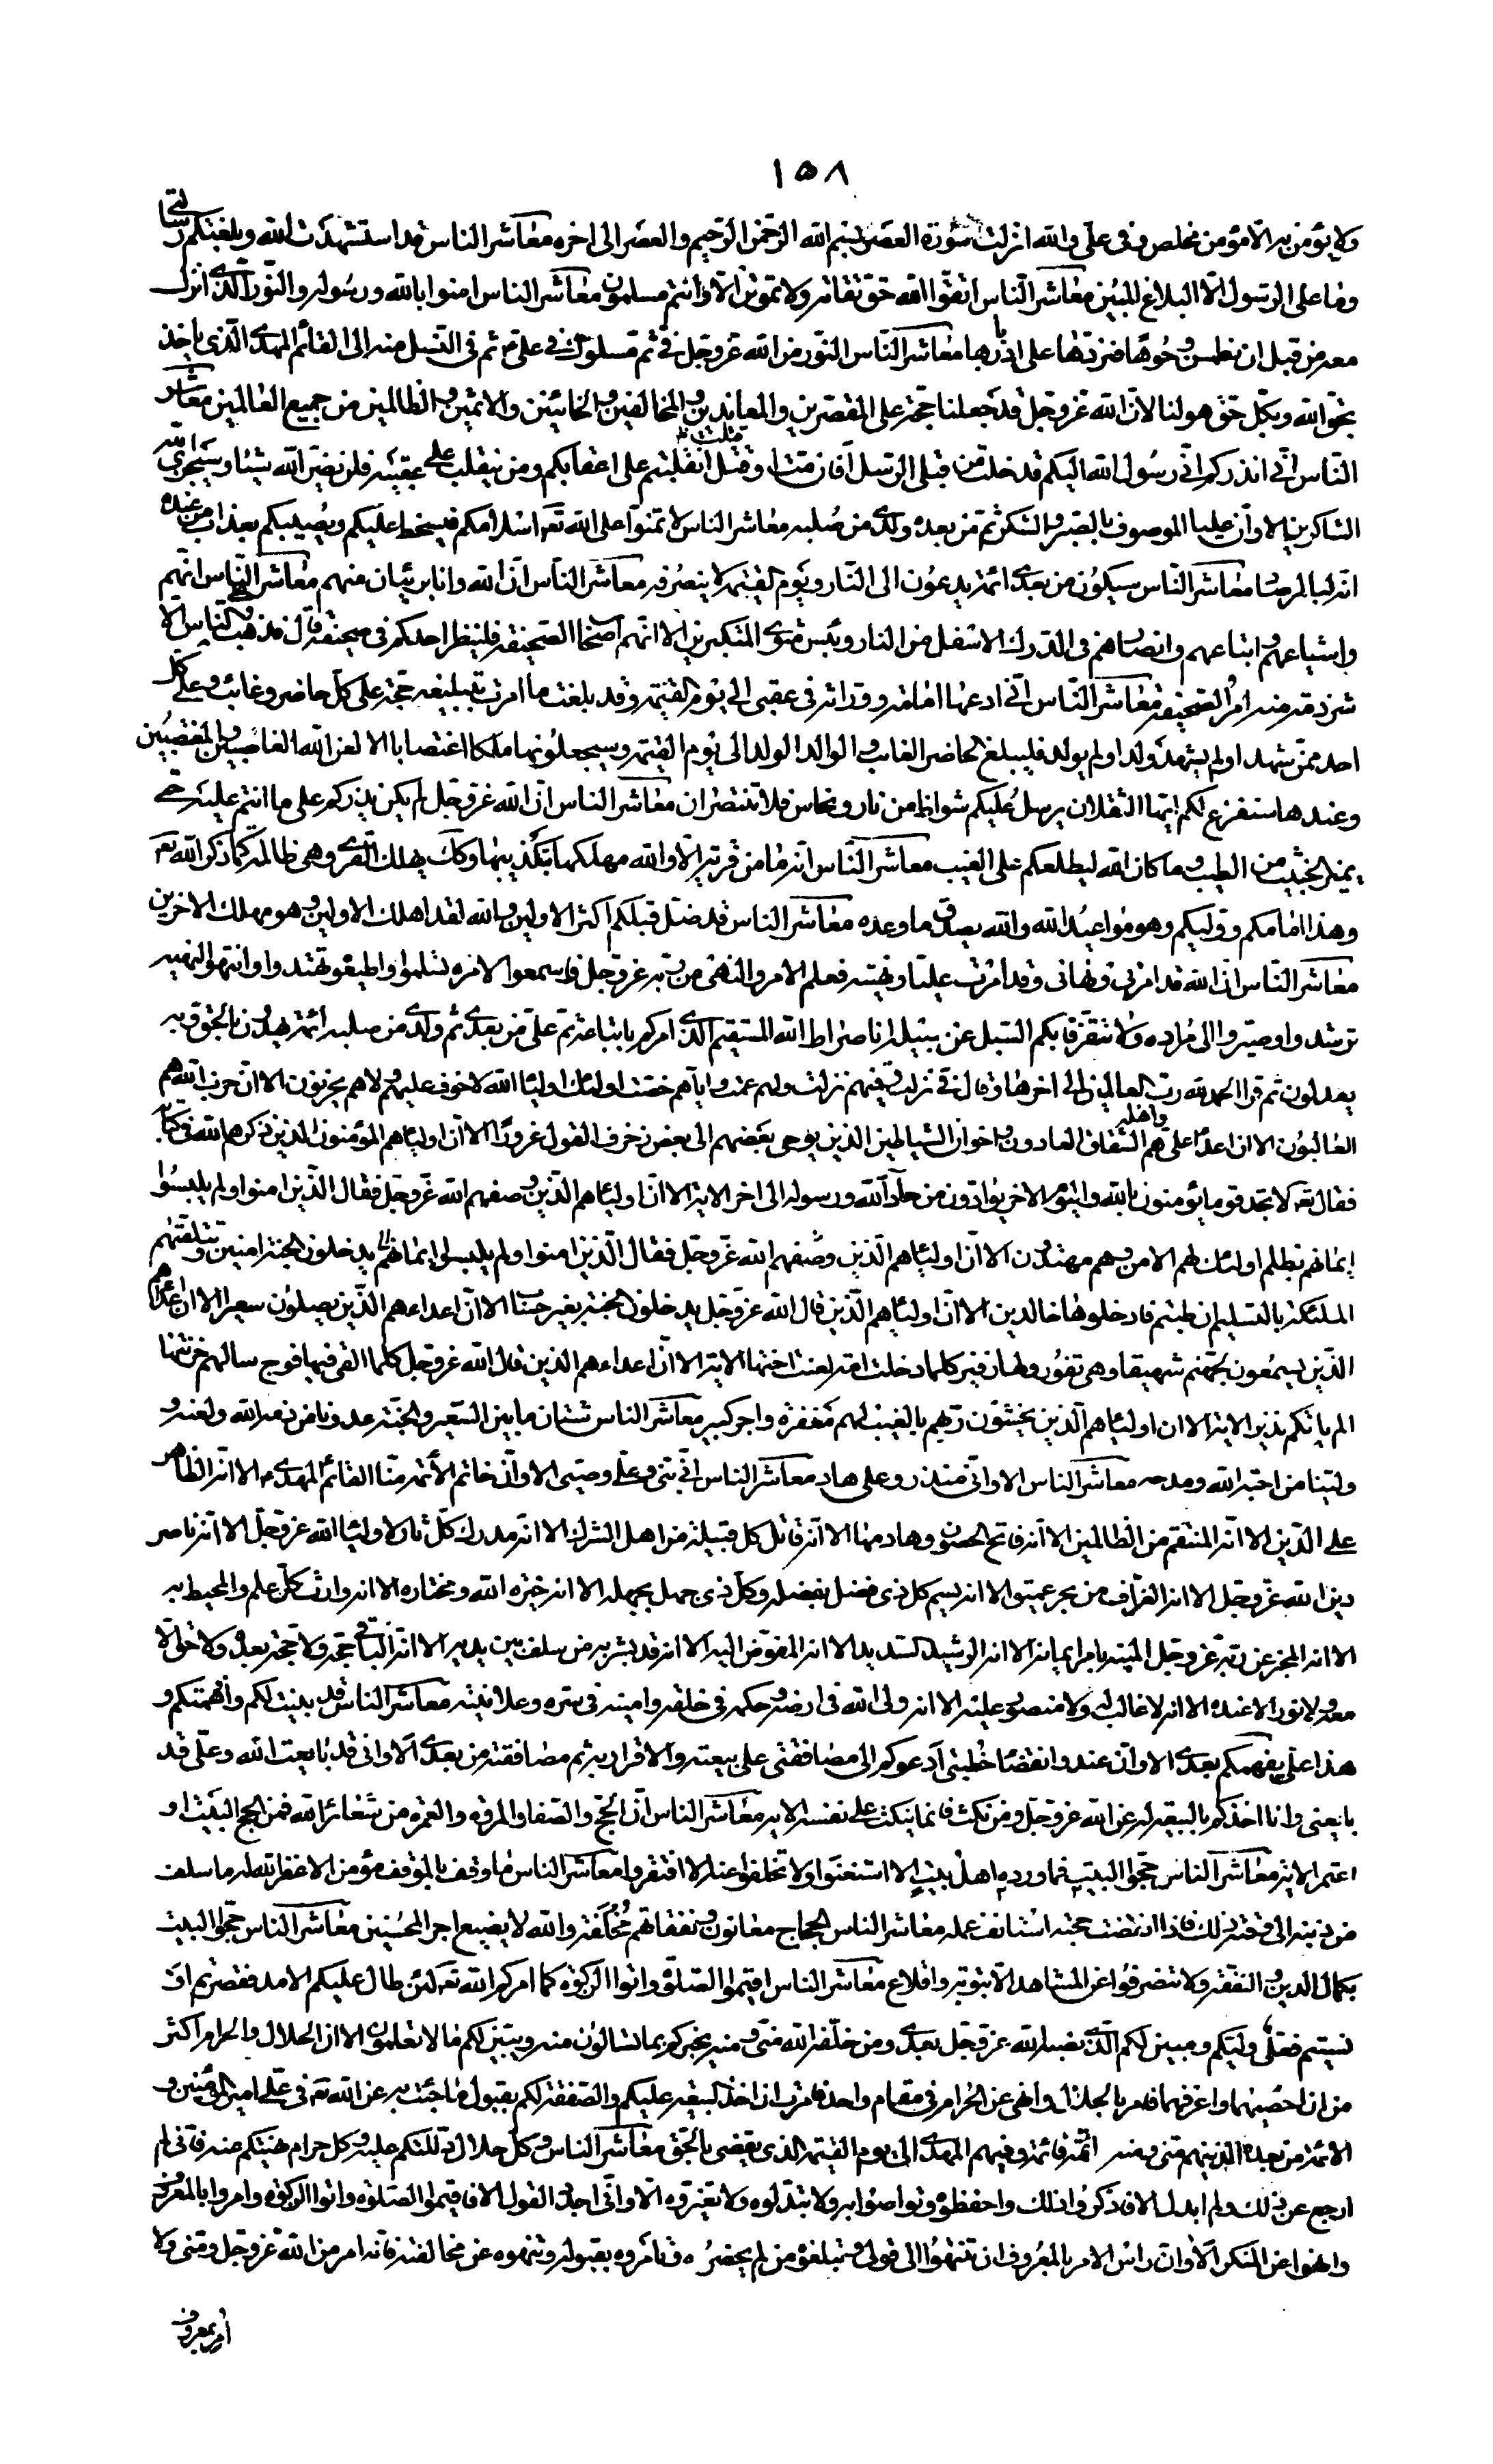 ١٥٨
ولا يؤمن به الا مؤمن مخلص وفى علىّ والله انزلت سورة العصر بسم الله الرّحمن الرّحيم والعصر الى اخره معاشر الناس قد استشهدت الله وبلغتكم رسالتى
وما على الرسول الاّ البلاغ المبين معاشر النّاس اتقوا الله حق تقاته ولا تموتنّ الاّ وانتم مسلمون معاشر الناس امنوا بالله ورسوله والنّور الّذى انزل
معه من قبل ان نطمس وجوهًا فنردّها على ادبارها معاشر النّاس النّور من الله عزوجل فىّ ثم مسلوك فى علىّ ثم فى النسل منه الى القائم المهدى الّذى ياخذ
بحق الله وبكل حق هو لنا لان الله عزوجل قد جعلنا حجة على المقصرين والمعاندين والمخالفين والخائنين والاثمين والظالمين من جميع العالمين معاشر
النّاس انّى انذركم انّى رسول الله اليكم قد خلت من قبلى الرسل افان متّ او قتلت انقلبتم على اعقابكم ومن ينقلب على عقبيه فلن يضرّ الله شيئا وسيجزى الله
الشاكرين الا وانّ عليا الموصوف بالصبر والشكر ثمّ من بعده ولدى من صلبه معاشر الناس لا تمنّوا على الله تعر اسلامكم فيسخط عليكم ويصيبكم بعذاب من عنده
انّه لبالمرصاد معاشر النّاس سيكون من بعدى ائمة يدعون الى النّار ويوم القيمة لا ينصرون معاشر النّاس انّ الله وانا بريئان منهم معاشر النّاس انّهم
واشياعهم واتباعهم وانصارهم فى الدّرك الاسفل من النار وبئس مثوى المتكبرين الا انّهم اصحاب الصحيفة فلينظر احدكم فى صحيفته قال فذهب على الناس الاّ
شرذمة منهم امر الصحيفة معاشر النّاس انّى ادعها امامة ووراثة فى عقبى الى يوم القيمة وقد بلغت ما امرت بتبليغه حجة على كلّ حاضر وغائب وعلى كل
احد ممّن شهد او لم يشهد ولد او لم يولد فليبلغ الحاضر الغائب والوالد الولد الى يوم القيمة وسيجعلونها ملكا اغتصابا الا لعن الله الغاصبين والمغتصبين
وعندها سنفرغ لكم ايها الثقلان يرسل عليكم شواظ من نار ونحاس فلا تنتصران معاشر الناس انّ الله عزوجل لم يكن يذركم على ما انتم عليه حتى
يميز الخبيث من الطيب وما كان الله ليطلعكم على الغيب معاشر النّاس انّه ما من قرية الا والله مهلكها بتكذيبها وكذلك يهلك القرى وهى ظالمة كما ذكر الله تعر
وهذا امامكم ووليكم وهو مواعيد الله والله يصدق ما وعده معاشر الناس قد ضلّ قبلكم اكثر الاولين والله لقد اهلك الاولين وهو مهلك الاخرين
معاشر النّاس انّ الله قد امرنى ونهانى وقد امرت عليّا ونهيته فعلم الامر والنهى من ربه عزوجل فاسمعوا لامره تسلموا واطيعوه تهتدوا وانتهوا لنهيه
ترشدوا وصيروا الى مراده ولا تتفرق بكم السبل عن سبيله انا صراط الله المستقيم الذى امركم باتباعه ثم علىّ من بعدى ثم ولدى من صلبه ائمة يهدون بالحق وبه
يعدلون ثم قرا الحمد لله رب العالمين الى اخرها وقال فىّ نزلت وفيهم نزلت ولهم عمت واياهم خصت اولئك اولياء الله لا خوف عليهم ولا هم يحزنون الا انّ حزب الله هم
الغالبون الا ان اعداء على هم اهل الشقاق العادون واخوان الشياطين الذين يوحى بعضهم الى بعض زخرف القول غرورا الا انّ اولياءهم المؤمنون الذين ذكرهم الله فى كتابه
فقال تعر لا تجد قوما يؤمنون بالله واليوم الاخر يوادّون من حادّ الله ورسوله الى اخر الاية الا انّ اولياءهم الّذين وصفهم الله عزّوجلّ فقال الّذين امنوا ولم يلبسوا
ايمانهم بظلم اولئك لهم الامن وهم مهتدون الا انّ اولياءهم الّذين وصفهم الله عزّوجلّ فقال الّذين امنوا ولم يلبسوا ايمانهم يدخلون الجنة امنين وتتلقيهم
الملئكة بالتسليم ان طبتم فادخلوها خالدين الا انّ اولياءهم الّذين قال الله عزوجل يدخلون الجنة بغير حساب الا انّ اعداءهم الّذين يصلون سعيرا الا ان اعداءهم
الّذين يسمعون لجهنم شهيقا وهى تفور ولها زفير كلما دخلت امة لعنت اختها الاية الا انّ اعداءهم الذين قال الله عزوجل كلما القى فيها فوج سالهم خزنتها
الم ياتكم نذير الاية الا ان اولياءهم الّذين يخشون ربّهم بالغيب لهم مغفرة واجر كبير معاشر الناس شتان ما بين السّعير والجنّة عدوّنا من ذمه الله ولعنه و
وليّنا من احبه الله ومدحه معاشر الناس الا وانّى منذر وعلى هاد معاشر الناس انّى نبىّ وعلى وصيى الا وانّ خاتم الائمة منّا القائم المهدى ء الا انّه الظاهر
على الدّين الا انّه المنتقم من الظالمين الا انّه فاتح الحصون وهادمها الا انّه قاتل كل قبيلة من اهل الشرك الا انّه مدرك كلّ ثار لاولياء الله عزوجلّ الا انّه ناصر
دين الله عزّوجلّ الا انه الغرّاف من بحر عميق الا انه يسم كل ذى فضل بفضله وكلّ ذى جهل بجهله الا انه خيرة الله ومختاره الا انه وارث كلّ علم والمحيط به
الا انه المخبر عن ربّه عزوجل المنبه بامر ايمانه الا انه الرشيد السديد الا انه المفوّض اليه الا انه قد بشر به من سلف بين يديه الا انّه الباقى حجة ولا حجة بعده ولا حق الا
معه ولا نور الا عنده الا انه لا غالب له ولا منصور عليه الا انه ولى الله فى ارضه وحكمه فى خلقه وامينه فى سره وعلانيته معاشر الناس قد بينت لكم وافهمتكم و
هذا علىّ يفهمكم بعدى الا وانّ عند انقضاء خطبتى ادعوكم الى مصافقتى على بيعته والاقرار به ثم مصافقته من بعدى الا وانى قد بايعت الله وعلّى قد
بايعنى وانا اخذكم بالبيعة له عن الله عزوجلّ ومن نكث فانما ينكث على نفسه الاية معاشر الناس انّ الحجّ والصّفا والمروة والعمرة من شعائر الله فمن حج البيت او
اعتمر الاية معاشر الناس حجّوا البيت فما ورده اهل بيت الا استغنوا ولا تخلفوا عنه الا افتقروا معاشر الناس ما وقف بالموقف مؤمن الا غفر الله له ما سلف
من ذنبه الى وقته ذلك فاذا انقضت حجته استانف عمله معاشر الناس الحجاج معانون ونفقاتهم مخلّفة والله لا يضيع اجر المحسنين معاشر الناس حجّوا البيت
بكمال الدين والتفقه ولا تنصرفوا عن المشاهد الا بتوبة واقلاع معاشر الناس اقيموا الصّلوة واتوا الزكوة كما امركم الله تعر لئن طال عليكم الامد فقصرتم او
نسيتم فعلىّ وليّكم ومبين لكم الّذى نصبه الله عزوجل بعدى ومن خلّفه الله منّى ومنه يخبركم بما تسالون منه ويبيّن لكم ما لا تعلمون الا ان الحلال والحرام اكثر
من ان احصيهما واعرفهما فامر بالحلال وانهى عن الحرام فى مقام واحد فامرت ان اخذ البيعة عليكم والصّفقة لكم بقبول ما جئت به عن الله تعر فى علىّ امير المؤمنين و
الائمة من بعده الذينهم منى ومنه ائمّة قائمة وفيهم المهدى الى يوم القيمة الذى يقضى بالحقّ معاشر الناس وكلّ حلال دللتكم عليه وكل حرام نهيتكم عنه فانّى لم
ارجع عن ذلك ولم ابدل الا فاذكروا ذلك واحفظوه وتواصوا به ولا تبدّلوه ولا تغيّروه الا وانّى اجدد القول الا فاقيموا الصّلوة واتوا الزكوة وامروا بالمعروف
وانهوا عن المنكر الا وانّ راس الامر بالمعروف ان تنتهوا الى قولى وتبلغوه من لم يحضره وتامروه بقبوله وتنهوه عن مخالفته فانّه امر من الله عزوجل ومنّى ولا
امر بمعروف